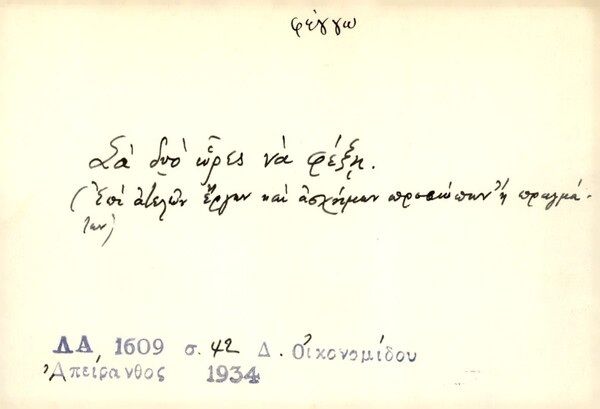 φέγγω
Σά δυό ὧρες νά φέξῃ.
(Ἐπί ἀτελῶν ἔργων καί ἀσχήμων προσώπων ἤ πραγμά-
των)
ΛΑ 1609 σ. 42 Δ. Οἰκονομίδου
Ἀπείρανθος 1934